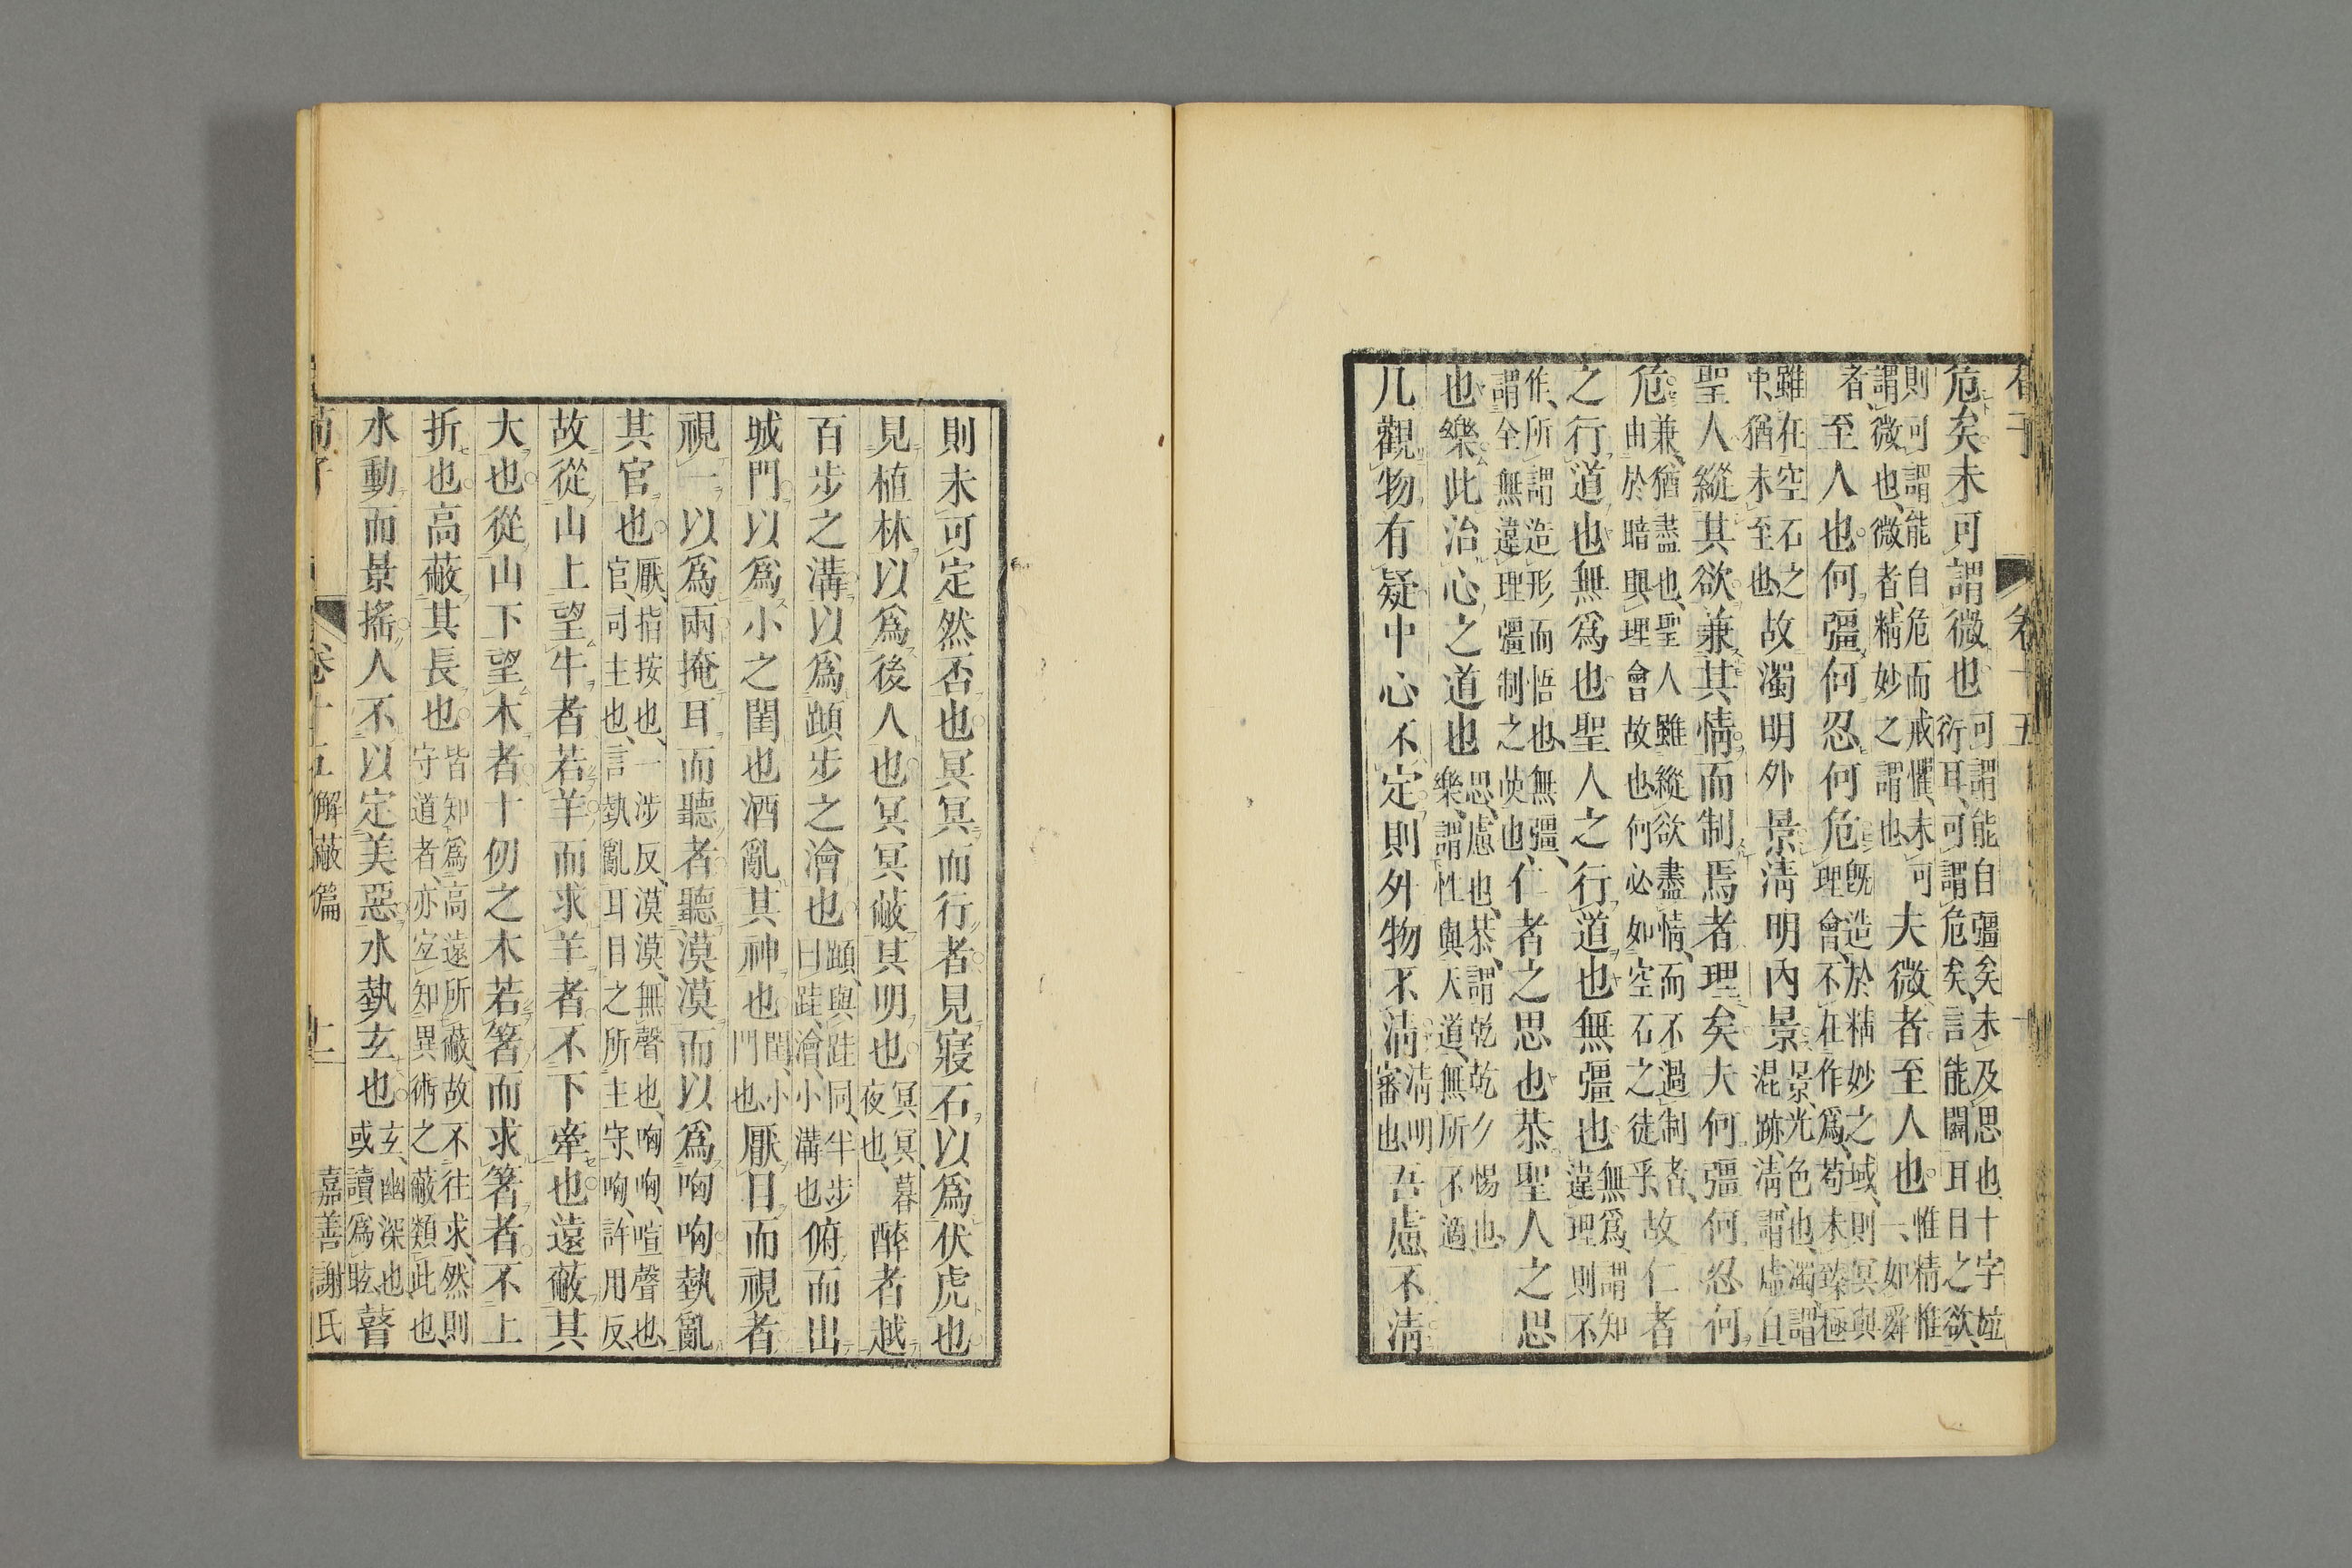 荀子 卷十五
危矣未可謂微也可謂能自彊矣未及思也十字竝衍耳可謂危矣言能闢耳目之欲
則可謂能自危而戒懼未可謂微也微者精妙之謂也夫微者至人也惟精惟一如舜
者至人也何彊何忍何危既造於精妙之域則冥與理會不在作爲苟未臻極
雖在空石之中猶未至也故濁明外景淸明內景景光色也濁謂混跡淸謂虛白
聖人縱其欲兼其情而制焉者理矣夫何彊何忍何
危兼猶盡也聖人雖縱欲盡情而不過制者由於暗與理會故也何必如空石之徒乎故仁者
之行道也無爲也聖人之行道也無彊也無爲謂知違理則不
作所謂造形而悟也無彊謂全無違理彊制之萌也仁者之思也恭聖人之思
也樂此治心之道也思慮也恭謂乾乾夕惕也樂謂性與天道無所不適
凡觀物有疑中心不定則外物不淸淸明審也吾慮不淸
則未可定然否也冥冥而行者見寢石以爲伏虎也
見植林以爲後人也冥冥蔽其明也冥冥暮夜也醉者越
百步之溝以爲蹞步之澮也蹞與跬同半步曰跬澮小溝也俯而出
城門以爲小之閨也酒亂其神也閨小門也厭目而視者
視一以爲兩掩耳而聽者聽漠漠而以爲哅哅埶亂
其官也厭指按也一涉反漠漠無聲也哅哅喧聲也官司主也言埶亂耳目之所主守哅許用反
故從山上望牛者若羊而求羊者不下牽也遠蔽其
大也從山下望木者十仞之木若箸而求箸者不上
折也高蔽其長也皆知爲高遠所蔽故不往求然則守道者亦宜知異術之蔽類此也
水動而景搖人不以定美惡水埶玄也玄幽深也或讀爲眩瞽
荀子 卷十五 解蔽篇 十一 嘉善謝氏